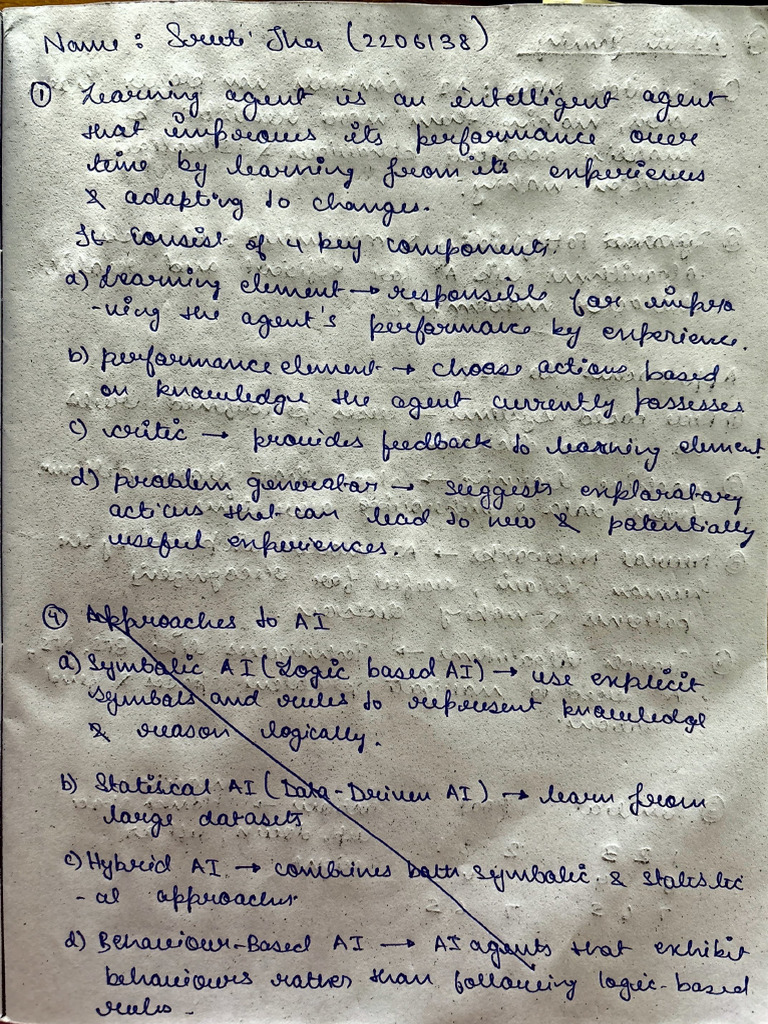 Name : Sruti Jha (2206138)
① Learning agent is an intelligent agent
that improves its performance over
time by learning from its experiences
& adapting to changes.
It consist of 4 key components
a) Learning element → responsible for impro
-ving the agent's performance by experience.
b) performance element → choose actions based
on knowledge the agent currently possesses
c) critic → provides feedback to learning element
d) problem generator → suggests exploratory
actions that can lead to new & potentially
useful experiences.
④ Approaches to AI
a) Symbolic AI (Logic based AI) → use explicit
symbols and rules to represent knowledge
& reason logically.
b) Statiscal AI (Data-Driven AI) → learn from
large datasets
c) Hybrid AI → combines both symbolic & statistic
-al approaches
d) Behaviour-Based AI → AI agents that exhibit
behaviours rather than following logic-based
rules.